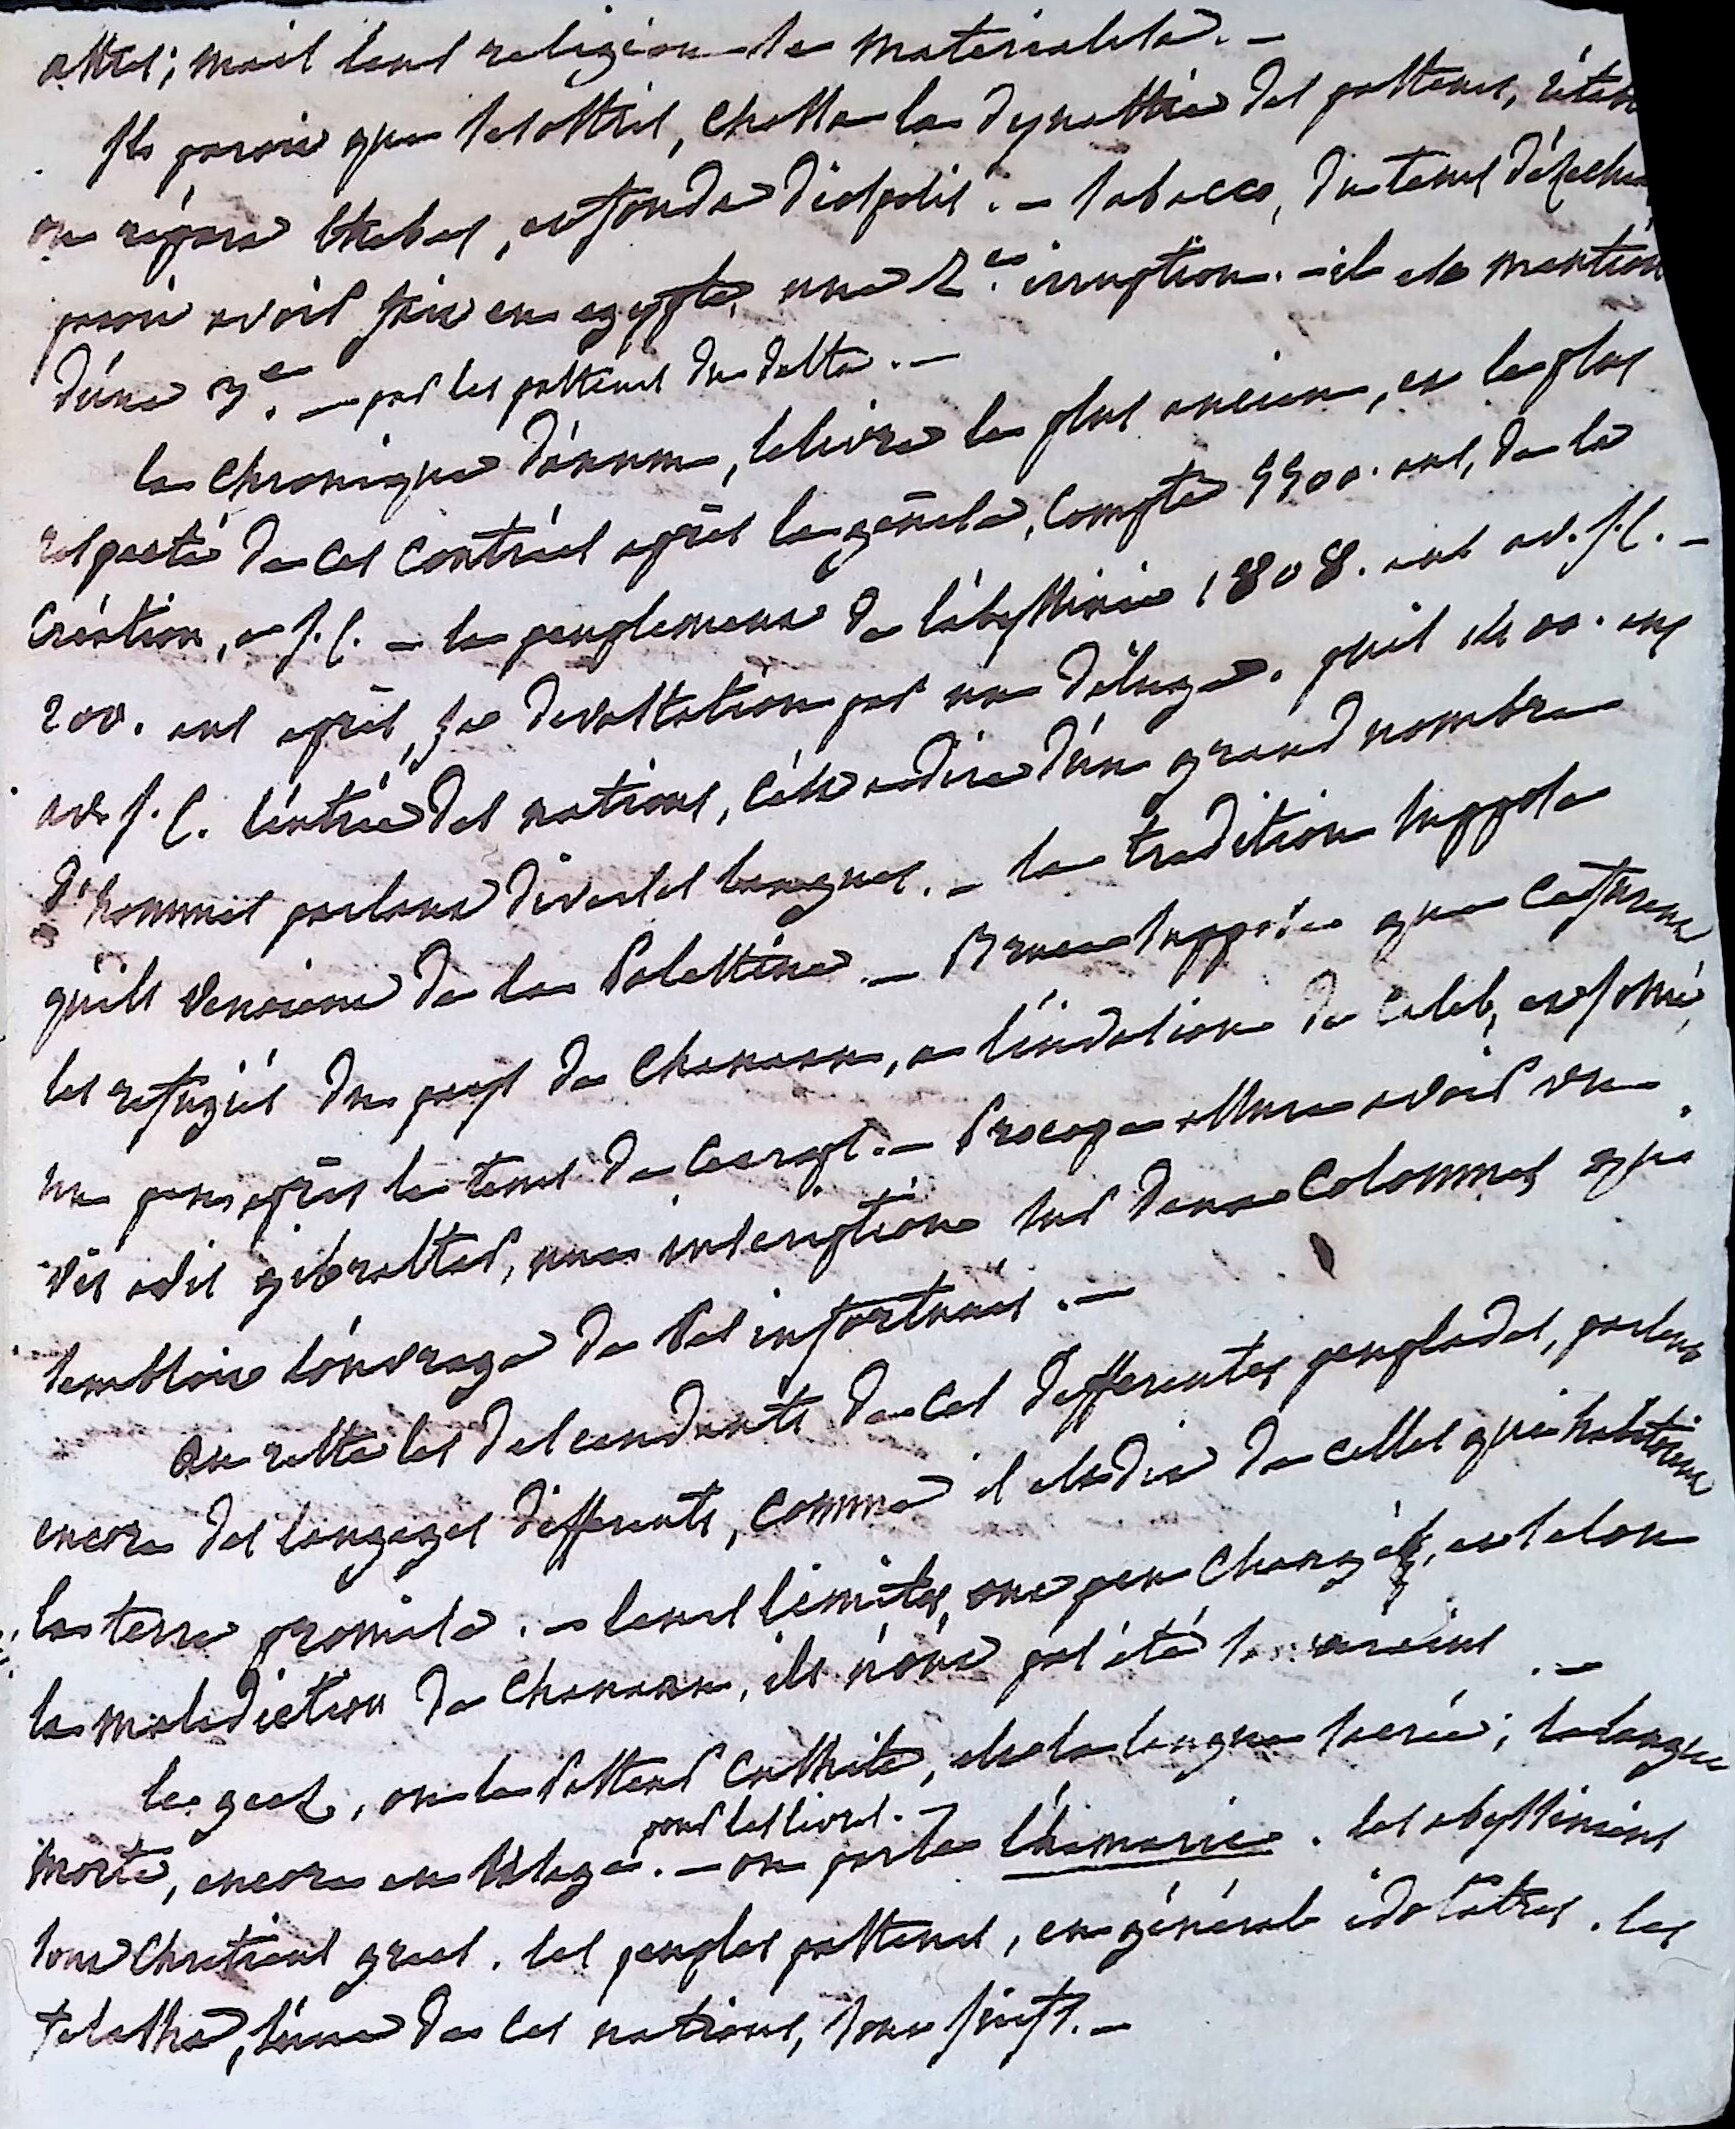 astres; mais leur religion se materialisa. -
Il paroit que sesostris, chassa la dynastie des pasteurs, retabl
ou répara thebes, et fonda diospolis. - sabacco, du tems d'ézechi
paroit avoir fait en egypte, une 2.e irruption. - il est mention
d'une 3.e - par les pasteurs du delta. -
la chronique d'axum, le livre le plus ancien, et le plus
respecté de ces contrées après la génèse, compte 5500. ans, de la
création, a J. C. - le peuplement de l'abyssinie 1808. ans av. J. C. -
200. ans après, sa devastation par un déluge. puis 1400. ans
av. J. C. l'entrée des nations, c'est a dire d'un grand nombre
d'hommes parlant diverses langues. - la tradition suppose
qu'ils venoient de la Palestine. - Bruce suppose que ce furent
les refugiés du pays de Chanaan, a l'invasion de Caleb, et josué,
un peu après le tems de Cecrops. - Procope assure avoir vu
vis avis gibraltar, une inscription sur deux Colonnes qui
sembloit l'ouvrage de ces infortunés. -
au reste les descendants de ces differentes peuplades, parlent
encore des langages differents, comme il est dit de celles qui habitoient
la terre promise. - leurs limites, ont peu changé, et selon
la malediction de Chanaan, ils n'ont pas été souverains. -
le geez, ou le Pasteur Cushite, est la langue sacrée; la langue
morte, encore en usage. - pour les livres. - on parle l'hamaric. les abyssiniens
sont Chretiens grecs. les peuples pasteurs, en général idolâtres. les
felasha, l'une de ces nations, sont juifs. -